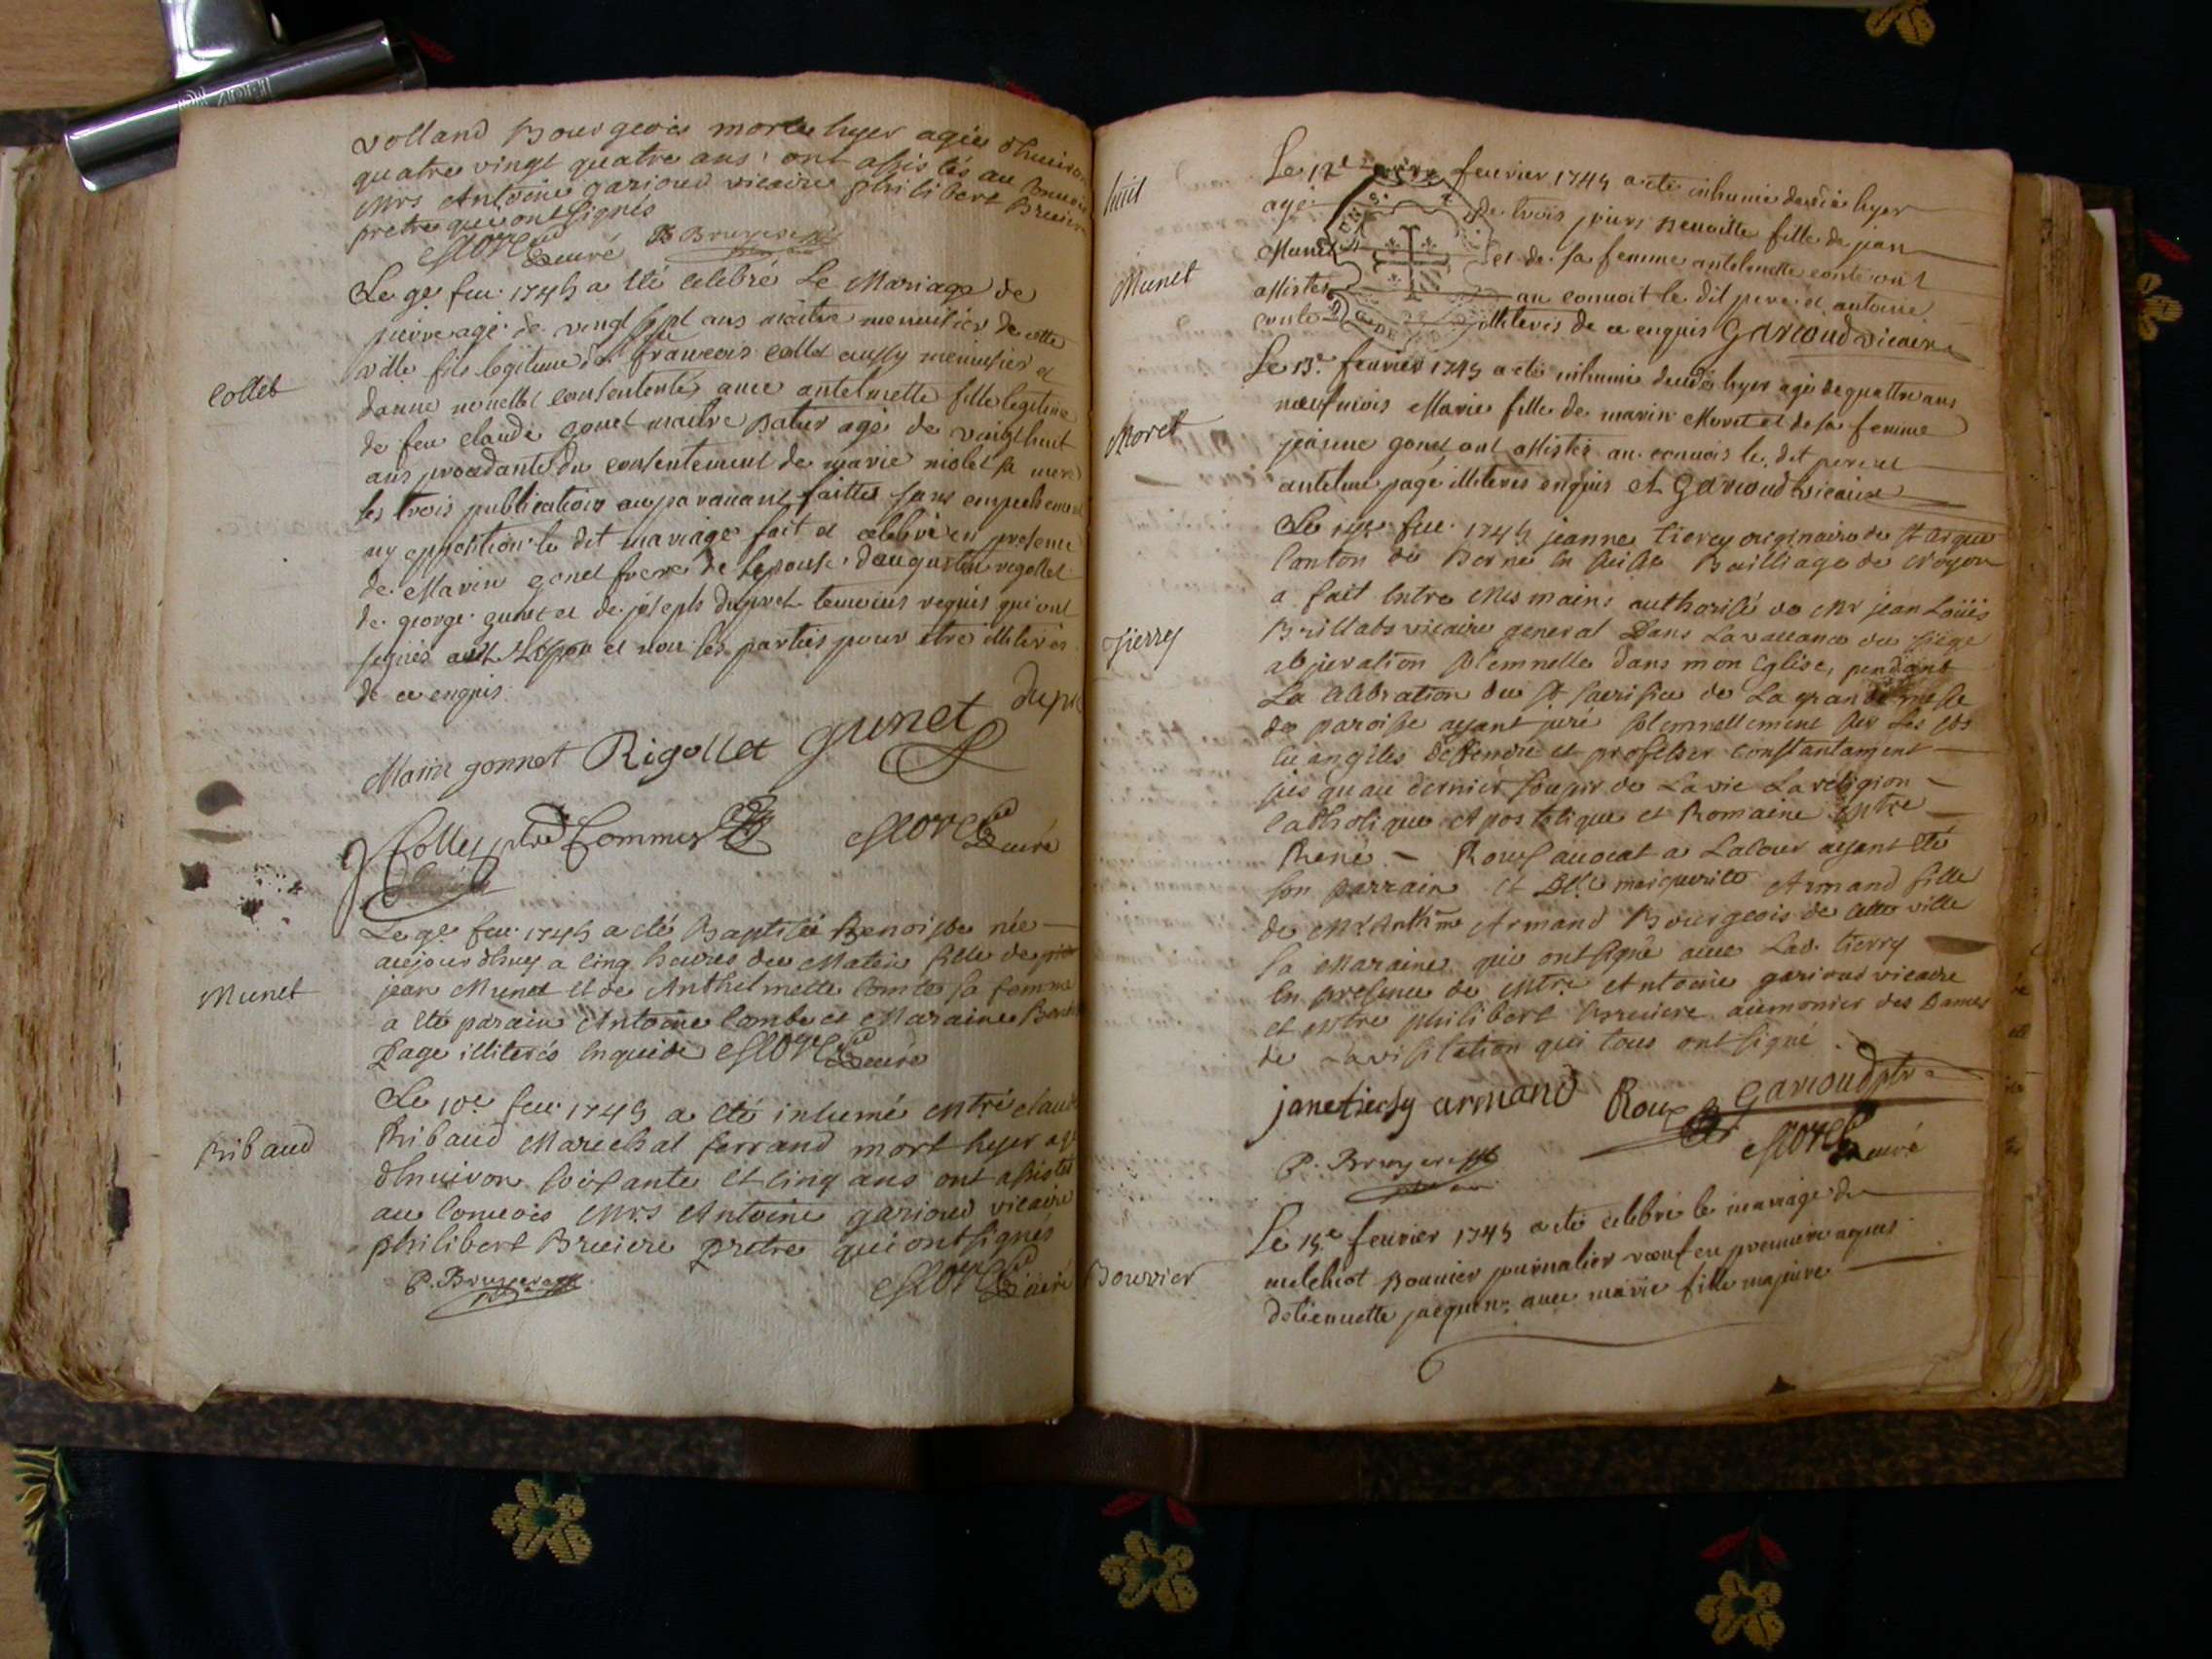 volland Bourgeois morte hyer agée d'huiron
quatre vingt quatre ans: ont assistés au Convoi
Mrs Antoine garioud vicaire philibert Bruiere
pretre qui ont signés
curé P. Bruyere
Collet
Le 9e feu. 1745 a eté celebré Le Mariage de
pierre agé de vingt sept ans maitre menuisier de cette
ville fils legitime de françois collet aussy menuisier et
danne consentente, avec antelmette fille legitime
de feu claude gonet maitre agé de vingt huit
ans procedante du consentement de marie niolet sa mere
les trois publications auparavant faittes sans empechement
ny opposition le dit mariage fait et celebré en presence
de Marin gonet frere de lepouse d'augustin regollet
de george gunet et de joseph dupret temoins requis qui ont
signés et non les parties pour etre illiterés
de ce enquis
Marin gonnet Rigollet gunet dupr
Collet ptre Commis curé
Munet
Le 9e feu. 1745 a eté Baptisée Benoiste née
aujourdhuy a cinq heures du Matin fille de
jean Munet et de Anthelmette Comte sa femme
a eté parain Antoine Comte et Maraine
Page illiterés enquide curé
Ribaud
Le 10e feu. 1745 a eté inhumé Mtre claude
Ribaud Marechal ferrand mort hyer agé
d'huiron soisante et cinq ans ont assistés
au Convois Mrs Antoine garioud vicaire
philibert Bruiere pretre qui ont signés
P. Bruyere curé
huit
Munet
Le 12e feurier 1745 a eté inhumée decedée hyer
agée de trois jours Benoitte fille de jean
Munet et de sa femme antelmette conte ont
assistes au convoit le dit pere et antoine
conte illiterés de ce enquis Garioud vicaire
Moret
Le 13e feurier 1745 a eté inhumée decedée hyer agée de quattre ans
neuf mois Marie fille de marin Moret et de sa femme
jeanne gonet ont assistés au convois le dit pere et
antelme page illiterés enquis et Garioud vicaire
Tierry
Le feu. 1745 jeanne tierry originaire de St
Canton de Berne en suisse Bailliage de Noyon
a fait Entre Mes mains authorisé de Mr jean Loüis
Brillat vicaire general Dans La vaccance du siege
abjuration solemnelle Dans mon Eglise, pendant
La celebration du St sacrifice de La grande messe
de paroisse ayant juré solemnellement sur Les sts
Euangiles deffendre et professer constantament
jusqu au dernier soupir de La vie La religion
Catholique Apostolique et Romaine Mtre
René Roux auocat a La Cour ayant eté
son parrain et Dlle marguerite Armand fille
de Mr Anthme Armand Bourgeois de cette ville
sa Maraine qui ont signé avec La d. tierry
En presence de Mtre Antoine garioud vicaire
et Mtre philibert Bruiere aumonier des Dames
de La visitation qui tous ont signé
jane tierly armand Roux Garioud ptre
P. Bruyere curé
Bouvier
Le 15e feurier 1745 a eté celebré le mariage de
melchiot Bouuier journalier vœuf en premiere
detiennette jacquin: auec marie fille majeure